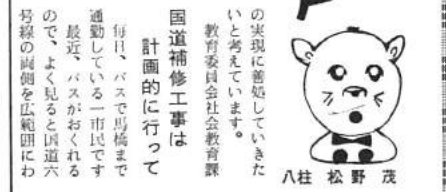 八柱　松野　茂
の実現に善処していきた
いと考えています。
教育委員会社会教育課
国道補修工事は
計画的に行って
毎日、バスで馬橋まで
通勤している一市民です
最近、バスがおくれる
ので、よく見ると国道六
号線の両側を広範囲にわ